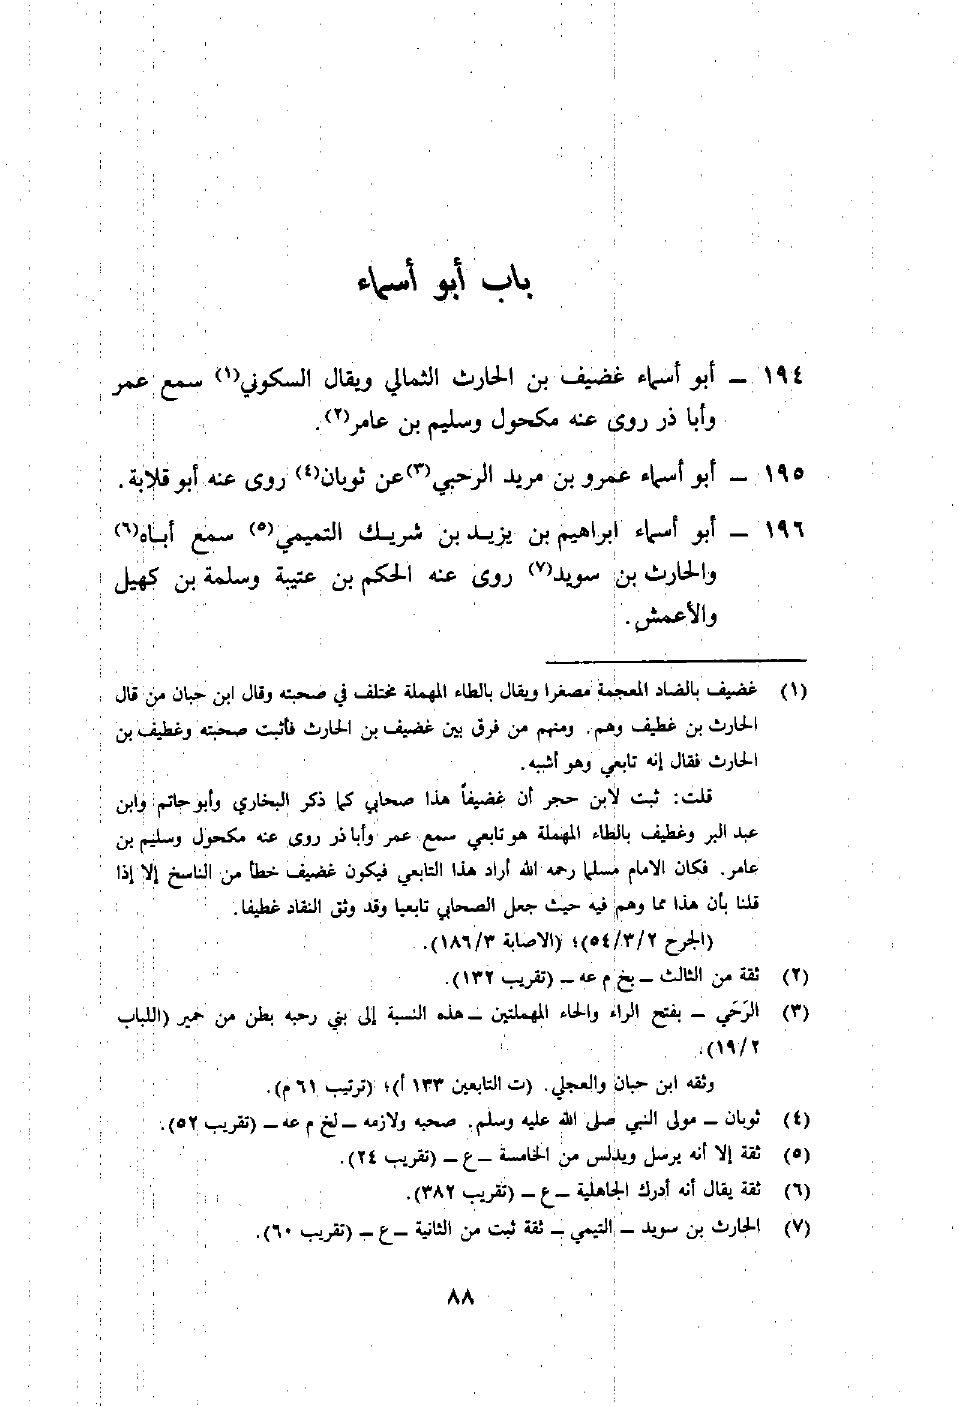 باب أبو أسماء
١٩٤ – أبو أسماء غضيف بن الحارث الثمالي ويقال السكوني(١) سمع عمر
وأبا ذر روى عنه مكحول وسليم بن عامر(٢).
١٩٥ – أبو أسماء عمرو بن مريد الرحبي(٣) عن ثوبان(٤) روى عنه أبو قلابة.
١٩٦ – أبو أسماء ابراهيم بن يزيد بن شريك التميمي(٥) سمع أباه(٦)
والحارث بن سويد(٧) روى عنه الحكم بن عتيبة وسلمة بن كهيل
والأعمش.
(١) غضيف بالضاد المعجمة مصغرا ويقال بالطاء المهملة مختلف في صحبته وقال ابن حبان من قال
الحارث بن غطيف وهم. ومنهم من فرق بين غضيف بن الحارث فأثبت صحبته وغطيف بن
الحارث فقال إنه تابعي وهو أشبه.
قلت: ثبت لابن حجر أن غضيفاً هذا صحابي كما ذكر البخاري وأبو حاتم وابن
عبد البر وغطيف بالطاء المهملة هو تابعي سمع عمر وأبا ذر روى عنه مكحول وسليم بن
عامر. فكان الامام مسلما رحمه الله أراد هذا التابعي فيكون غضيف خطأ من الناسخ إلا إذا
قلنا بأن هذا مما وهم فيه حيث جعل الصحابي تابعيا وقد وثق النقاد غطيفا.
(الجرح ٥٤/٣/٢)؛ (الاصابة ١٨٦/٣).
(٢) ثقة من الثالث – بخ م عه – (تقريب ١٣٢).
(٣) الرَحَبي – بفتح الراء والحاء المهملتين – هذه النسبة إلى بني رحبه بطن من حمير (اللباب
١٩/٢).
وثقه ابن حبان والعجلي. (ت التابعين ١٣٣ أ)؛ (ترتيب ٦١ م).
(٤) ثوبان – مولى النبي صلى الله عليه وسلم. صحبه ولازمه – لخ م عه – (تقريب ٥٢).
(٥) ثقة إلا أنه يرسل ويدلس من الخامسة – ع – (تقريب ٢٤).
(٦) ثقة يقال أنه أدرك الجاهلية – ع – (تقريب ٣٨٢).
(٧) الحارث بن سويد – التيمي – ثقة ثبت من الثانية – ع – (تقريب ٦٠).
٨٨